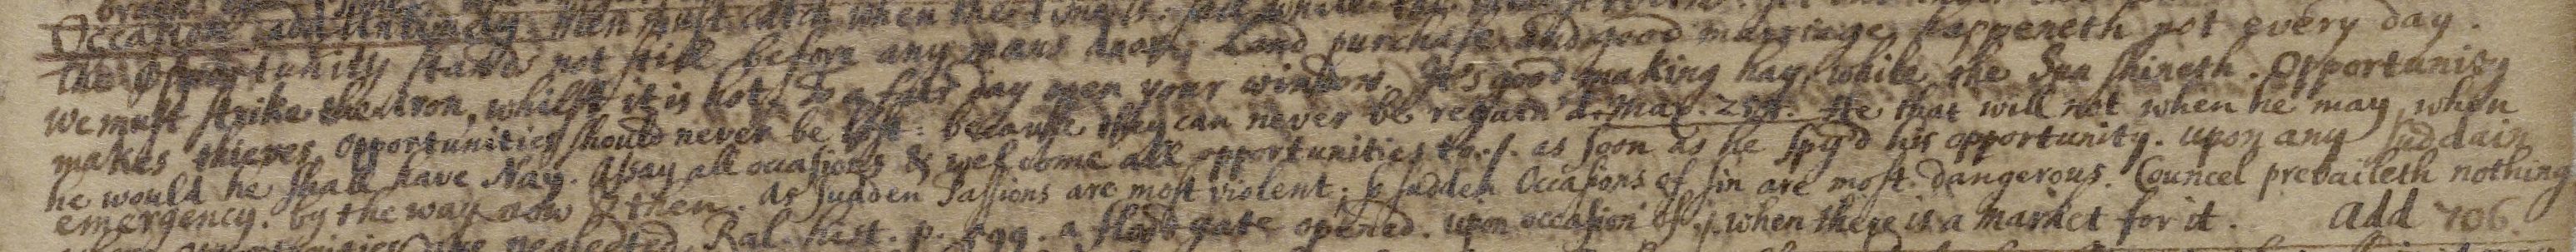 Occasion add Untimely. Men must catch when the time is.
The Opportunity stands not still before any mans door. Land purchase and good marriage happeneth not every day.
We must strike the Iron, whilst it is hot. To a fair day open your window. It's good making hay, while the Sun shineth. Opportunity
makes thieves. Opportunities should never be lost: because they can never be regain'd. Max. 251. He that will not when he may, when
he would he shall have Nay. Assay all occasions & welcome all opportunities to. s. as soon as he spy'd his opportunity. upon any suddain
emergency. by the way now & then. As sudden Passions are most violent; so sudden Occasions of sin are most dangerous. Councel prevaileth nothing
opportunities are neglected. Ral. hist. p. 599. a flood gate opened. upon occasion of. j. when there is a market for it. add 706.